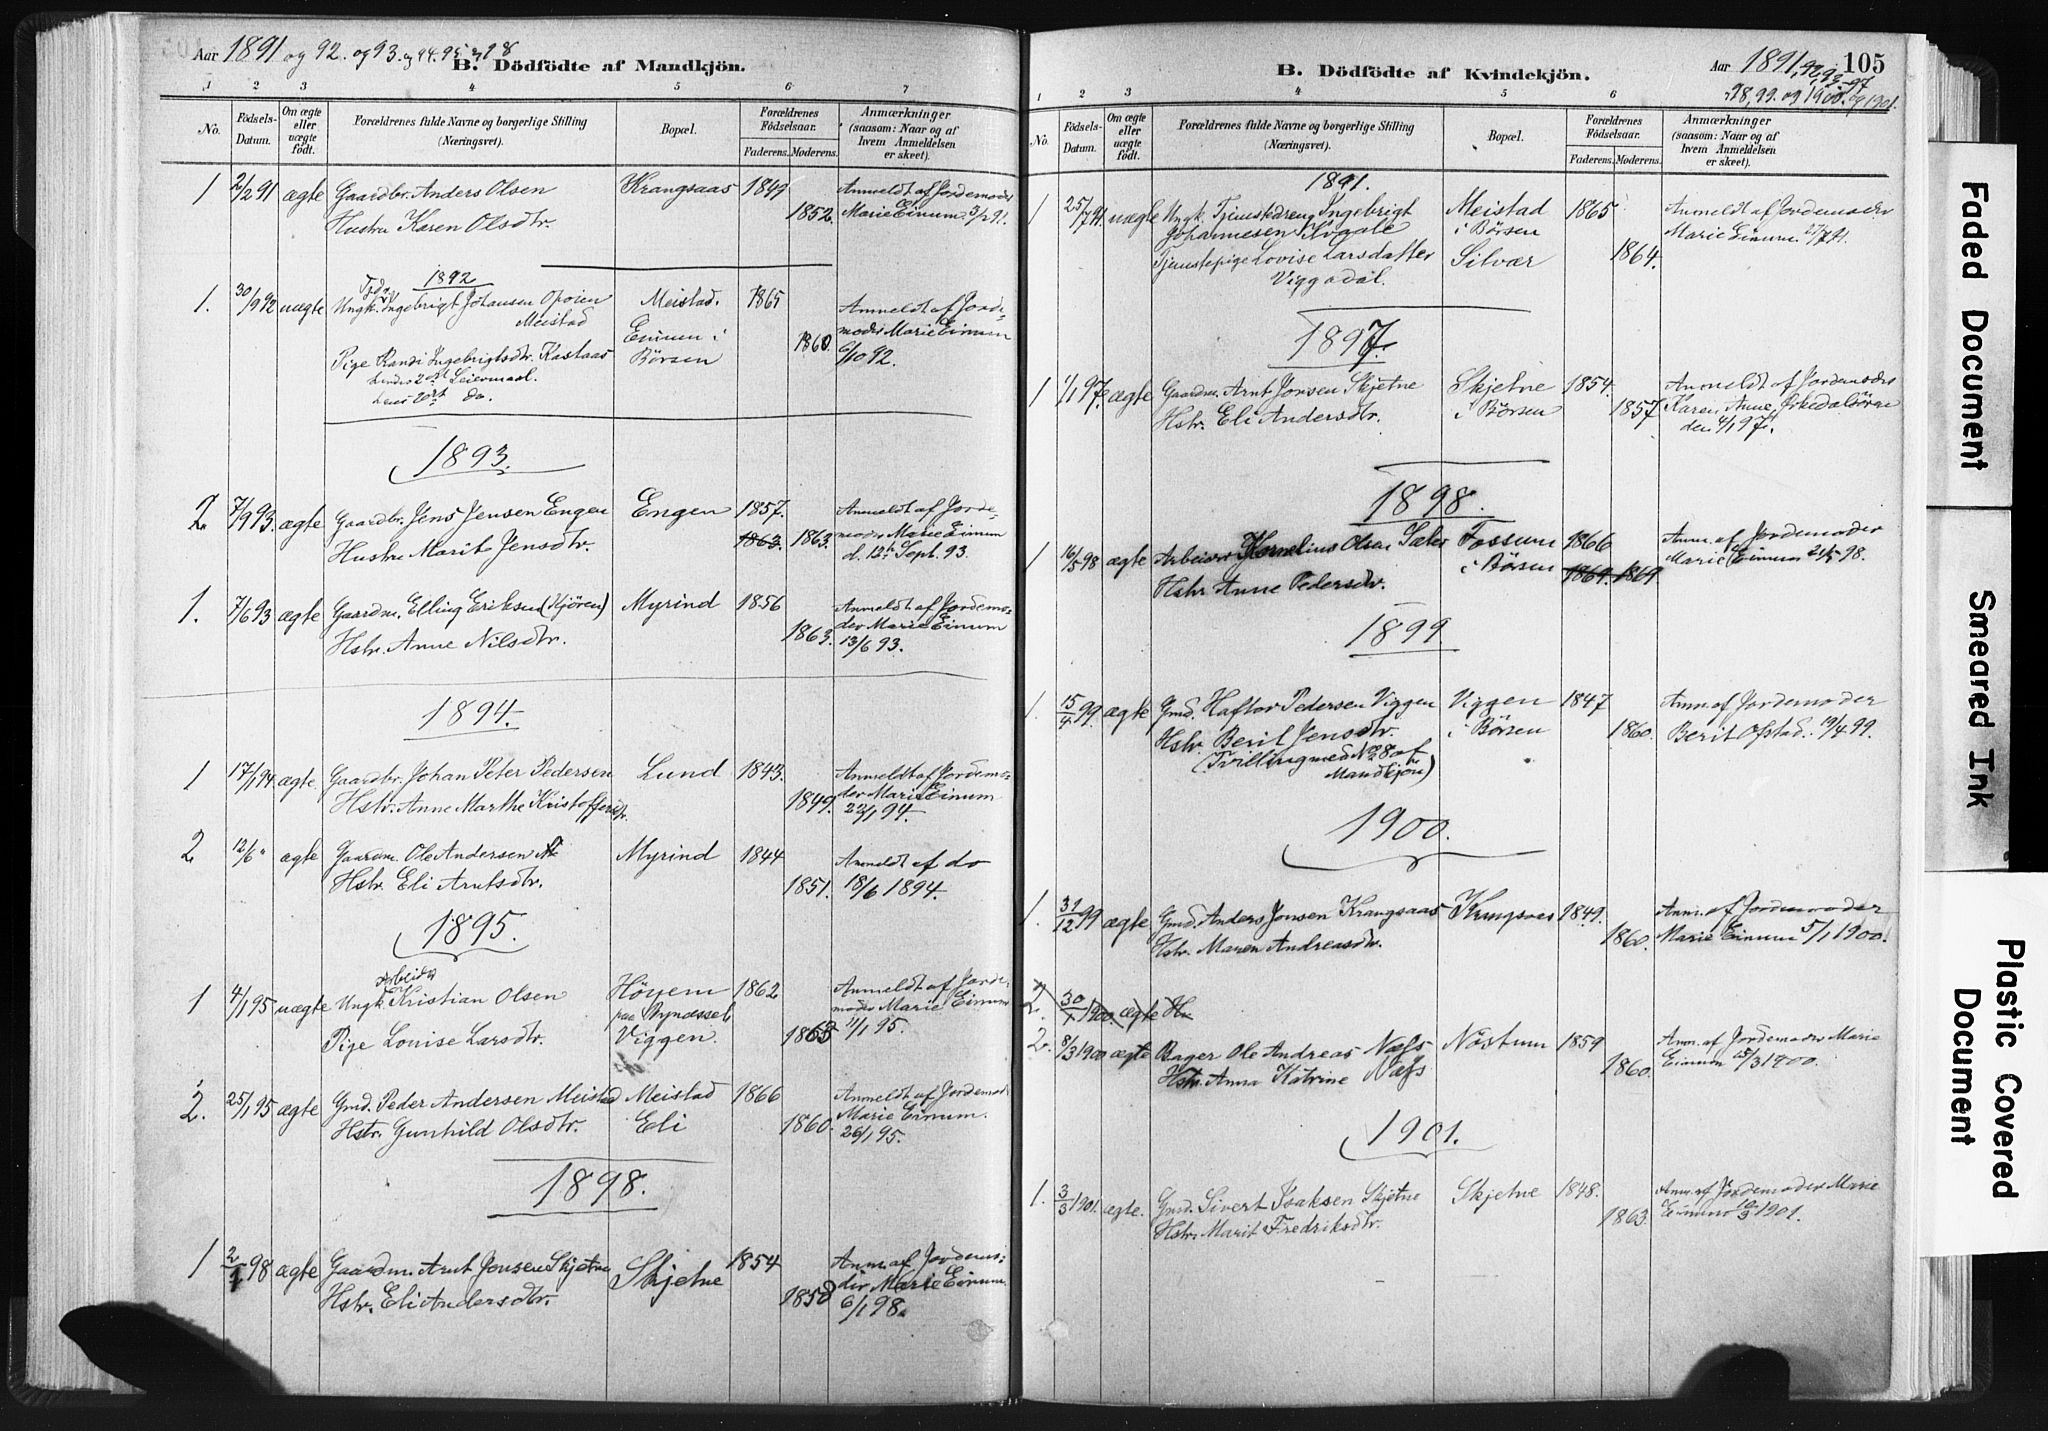 Aar 1891 og 92. og 93. og 94. 95. og 98
B. Dödfödte af Mandkjön.
1 2 3 4 5 6 7
No.
Födsels-Datum.
Om ægte eller uægte födt.
Forældrenes fulde Navne og borgerlige Stilling (Næringsvei).
Bopæl.
Forældrenes Födselsaar.
Faderens. Moderens.
Anmærkninger (saasom: Naar og af hvem Anmeldelsen er skeet).
1 2/2 91 ægte Gaardbr. Anders Olsen Krangsaas 1849 Anmeldt af Jordemoder
Hustru Karen Olsdtr. 1852. Marie Eimum 3/2 91.
1892
1. 30/9 92 uægte Ungk. Ingebrigt Johansen Opoien Meistad. 1865 Anmeldt af Jorde-
Meistad Eimum i 1860. moder Marie Eimum
Pige Randi Ingebrigtsdtr. Kastaas Börsen 6/10 92.
hendes 2det Leiermaal.
hans 2det do.
1893.
2. 7/9 93. ægte Gaardbr. Jens Jensen Engen Engen 1857. Anmeldt af Jorde-
Hustru Marit Jensdtr. 1863. 1863. moder Marie Eimum
d. 12te Sept. 93.
1. 7/6 93 ægte Gaardm. Elling Eriksen (Kjören) Myrind 1856 Anmeldt af Jordemo-
Hstr. Anne Nilsdtr. 1863. der Marie Eimum
13/6 93.
1894.
1 17/1 94. ægte Gaardbr. Johan Peter Pedersen Lund 1843. Anmeldt af Jordemo-
Hstr. Anne Marthe Kristoffersdtr. 1849. der Marie Eimum
22/1 94.
2 12/6 " ægte Gaardm. Ole Andersen Myrind 1844 Anmeldt af do
Hstr. Eli Arntsdtr. 1851. 18/6 1894.
1895.
Arbeider
1 4/1 95 uægte Ungk. Kristian Olsen Höyem 1862 Anmeldt af Jorde-
paa Byneset moder Marie Eimum
Pige Louise Larsdtr. Viggen. 1863 11/1 95.
2. 25/1 95 ægte Gmd. Peder Andersen Meistad Meistad 1866 Anmeldt af Jordemod.
Hstr. Gunhild Olsdtr. Eli 1860. Marie Eimum.
26/1 95.
1898.
1 2/1 98 ægte Gaardm. Arnt Jonsen Skjetne Skjetne 1854 Anm. af Jordemo-
Hstr. Eli Andersdtr. 1858 der Marie Eimum.
6/1 98.
B. Dödfödte af Kvindekjön.
Aar 1891, 92, 93, 97 105
98, 99. og 1900. og 1901.
1 2 3 4 5 6
No.
Födsels-Datum.
Om ægte eller uægte födt.
Forældrenes fulde Navne og borgerlige Stilling (Næringsvei).
Bopæl.
Forældrenes Födselsaar.
Faderens. Moderens.
Anmærkninger (saasom: Naar og af hvem Anmeldelsen er skeet).
1891.
1 25/7 91. uægte Ungk. Tjenstedreng Ingebrigt Meistad 1865 Anmeldt af Jordemoder
Johannesen Hogale i Börsen Marie Eimum 27/7 91.
Tjenstepige Lovise Larsdatter Silvær 1864.
Viggadal.
1897.
1 1/1 97. ægte Gaardm. Arnt Jonsen Skjetne Skjetne 1854. Anmeldt af Jordemoder
Hstr. Eli Andersdtr. i Börsen 1857. Karen Anne Orkedalsören
den 4/1 97.
1898.
1 16/5 98 ægte Arbeider Kornelius Olsen Sæter Fossum 1866 Anm. af Jordemoder
Hstr Anne Pedersdtr. i Börsen 1869. 1869. Marie Eimum 21/5 98.
1899.
1. 15/4 99. ægte Gmd. Haftor Pedersen Viggen Viggen 1847 Anm. af Jordemoder
Hstr. Beril Jensdtr. i Börsen 1860. Berit Ofstad. 19/4 99.
(Tvilling med No 8 af
Mandkjön)
1900.
1. 31/12 99 ægte Gmd. Anders Jonsen Krangsaas Krangsaas 1849. Anm. af Jordemoder
Hstr. Maren Andreasdtr. 1860. Marie Eimum 5/1 1900.
2. 30/1 1900 ægte H
2. 8/3 1900 ægte Bager Ole Andreas Næfs Nöstum 1859 Anm. af Jordemoder Marie
Hstr. Anna Katrine Næfs 1860. Eimum 15/3 1900.
1901.
1. 3/3 1901. ægte. Gmd. Sivert Isaksen Skjetne Skjetne 1848. Anm. af Jordemoder Marie
Hstr. Marit Fredriksdtr. 1863. Eimum 10/3 1901.
Faded Document
Smeared Ink
Plastic Covered Document